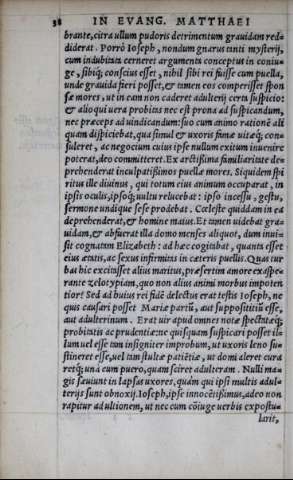 38 IN EVANG. MATTHAEI
brante, citra ullum pudoris detrimentum grauidam red=
diderat. Porrò Ioseph, nondum gnarus tanti mysterij,
cum indubitata cerneret argumenta conceptus in coniu=
ge, sibiq; conscius esset, nihil sibi rei fuisse cum puella,
unde grauida fieri posset, & tamen eos comperisset spon
sæ mores, ut in eam non caderet adulterij certa suspicio:
& alioqui uera probitas nec est prona ad suspicandum,
nec præceps ad uindicandum: suo cum animo rationē ali
quam dispiciebat, qua simul & uxoris famæ uitæq; con=
suleret, ac negocium cuius ipse nullum exitum inuenire
poterat, deo committeret. Ex arctissima familiaritate de=
prehenderat inculpatissimos puellæ mores. Siquidem spi
ritus ille diuinus, qui totum eius animum occuparat, in
ipsis oculis, ipsoq; uultu relucebat: ipso incessu, gestu,
sermone undique sese prodebat. Cœleste quiddam in ea
deprehenderat, & homine maius. Et tamen uidebat gra=
uidam, & abfuerat illa domo menses aliquot, dum inui=
sit cognatam Elizabeth: ad hæc cogitabat, quanta esset
eius ætatis, ac sexus infirmitas in cæteris puellis. Quas tur
bas hic excitasset alius maritus, præsertim amore exaspe=
rante zelotypiam, quo non alius animi morbus impoten
tior? Sed ad huius rei fidē delectus erat testis Ioseph, ne
quis causari posset Mariæ partū, aut supposititiū esse,
aut adulterinum. Erat uir apud omnes notæ spectatæq;
probitatis ac prudentiæ: ne quisquam suspicari posset il=
lum uel esse tam insigniter improbum, ut uxoris leno su=
stineret esse, uel tam stultæ patiētiæ, ut domi aleret cura
retq; unà cum puero, quam sciret adulteram. Nulli ma=
gis sæuiunt in lapsas uxores, quàm qui ipsi multis adul=
terijs sunt obnoxij. Ioseph, ipse innocētissimus, adeo non
rapitur ad ultionem, ut nec cum cōiuge uerbis expostu=
larit,